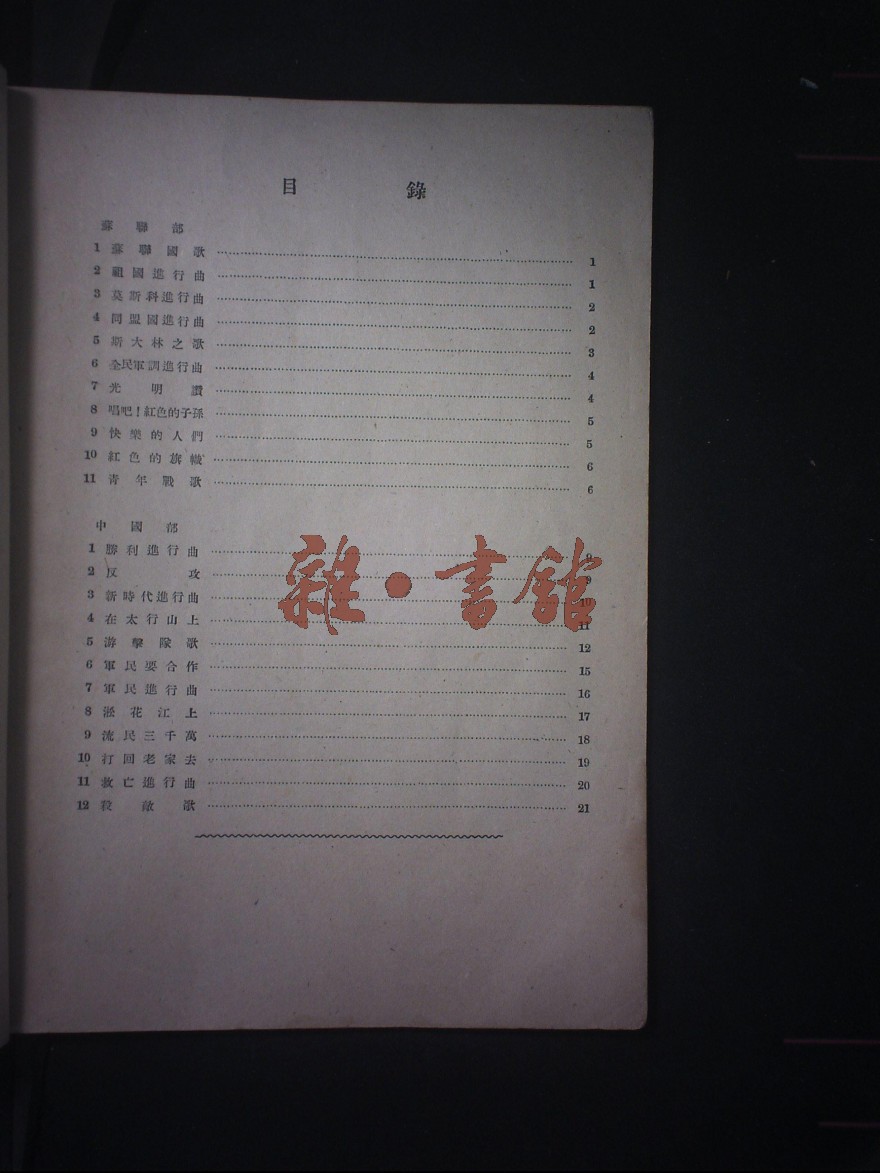 目錄
蘇聯部
1 蘇聯國歌 1
2 祖國進行曲 1
3 莫斯科進行曲 2
4 同盟國進行曲 2
5 斯大林之歌 3
6 全民軍訓進行曲 4
7 光明讚 4
8 唱吧！紅色的子孫 5
9 快樂的人們 5
10 紅色的旗幟 6
11 青年戰歌 6
中國部
1 勝利進行曲 9
2 反攻 9
3 新時代進行曲 10
4 在太行山上 11
5 游擊隊歌 12
6 軍民要合作 15
7 軍民進行曲 16
8 淞花江上 17
9 流民三千萬 18
10 打回老家去 19
11 救亡進行曲 20
12 殺敵歌 21
雜·書館